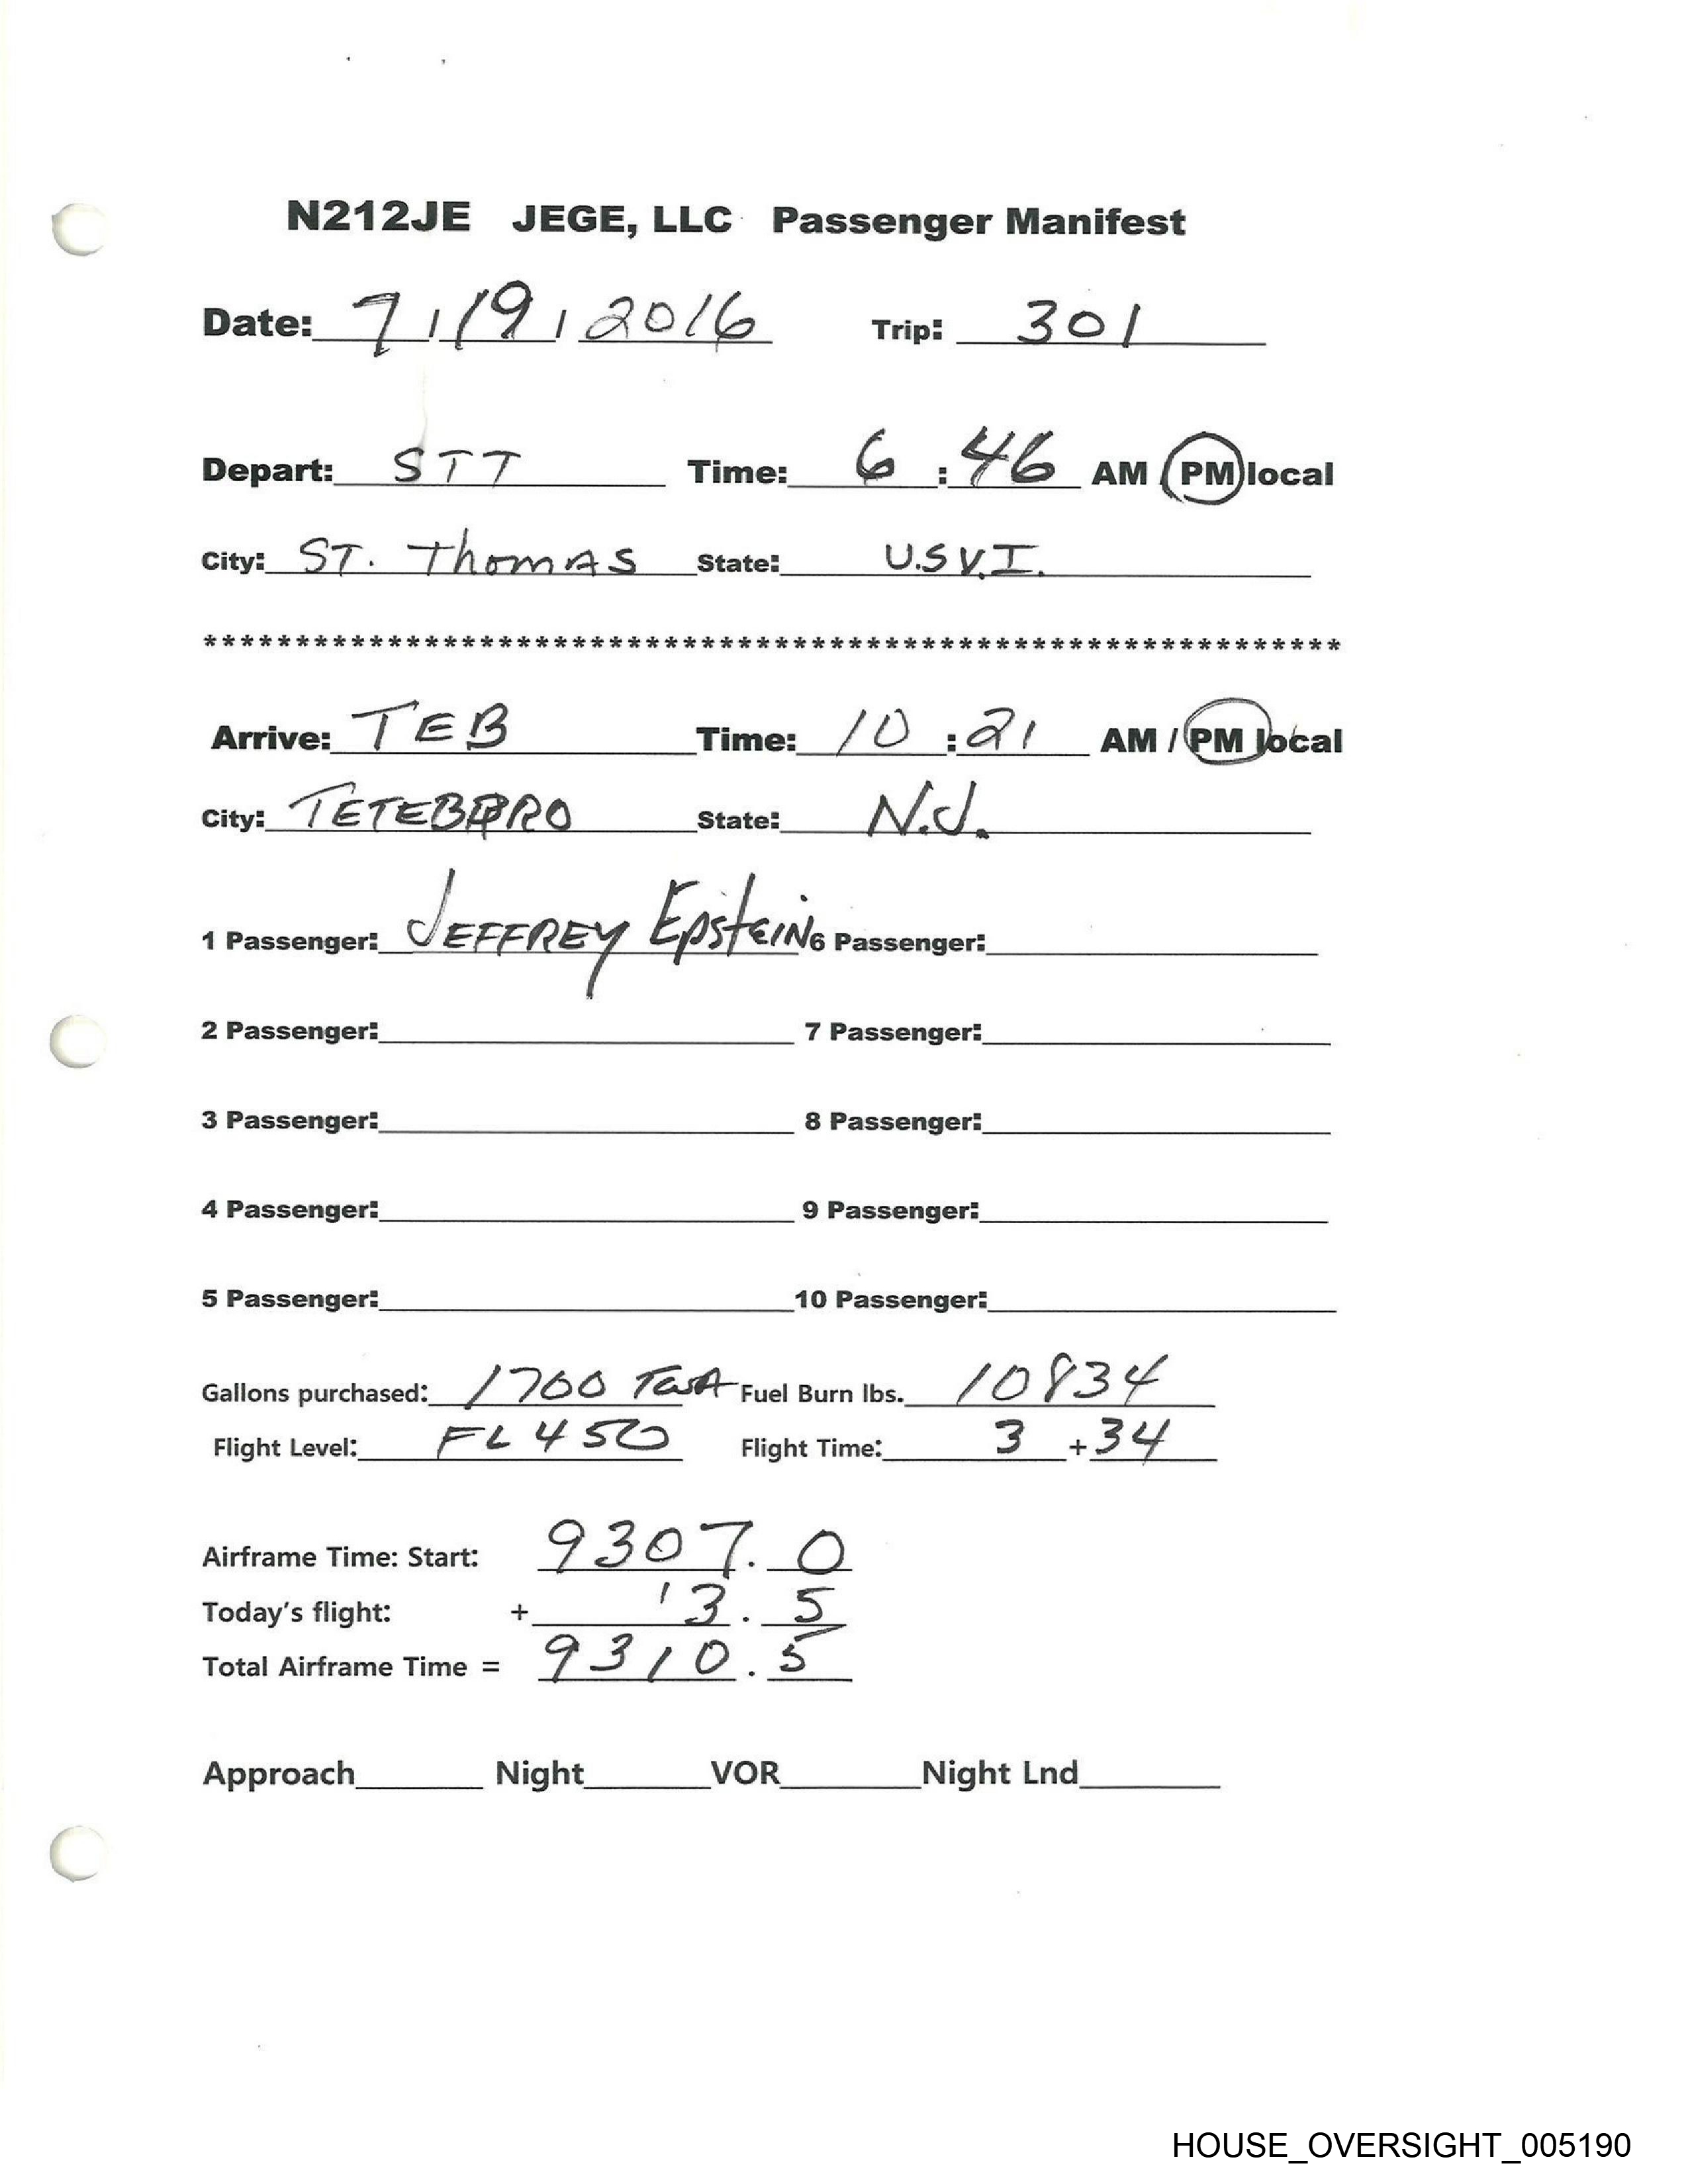 N212JE JEGE, LLC Passenger Manifest
Date: 7/19/2016 Trip: 301
Depart: STT Time: 6:46 AM / PM local
City: ST. Thomas State: U.S.V.I.
******************************************************************
Arrive: TEB Time: 10:21 AM / PM local
City: TETEBORO State: N.J.
1 Passenger: JEFFREY EpsteIN 6 Passenger:
2 Passenger: 7 Passenger:
3 Passenger: 8 Passenger:
4 Passenger: 9 Passenger:
5 Passenger: 10 Passenger:
Gallons purchased: 1700 Fuel Burn lbs. 10834
Flight Level: FL 450 Flight Time: 3 + 34
Airframe Time: Start: 9307.0
Today's flight: + 3.5
Total Airframe Time = 9310.5
Approach Night VOR Night Lnd
HOUSE_OVERSIGHT_005190